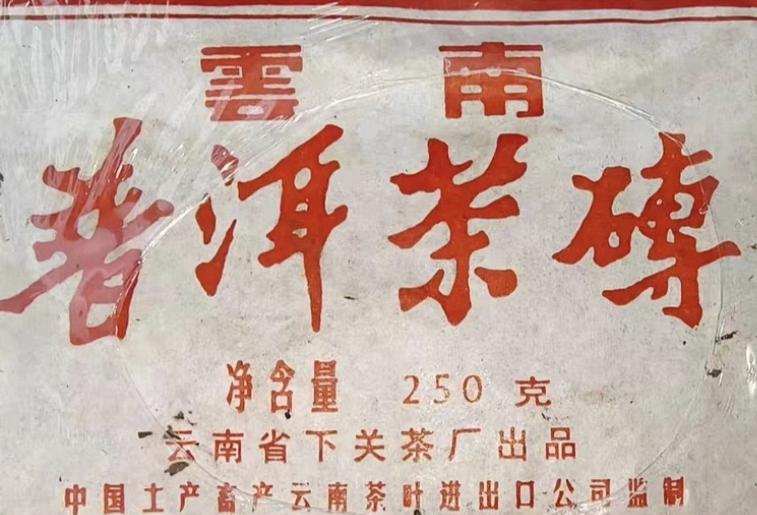 雲南
普洱茶磚
净含量 250 克
云南省下关茶厂出品
中国土产畜产云南茶叶进出口公司监制